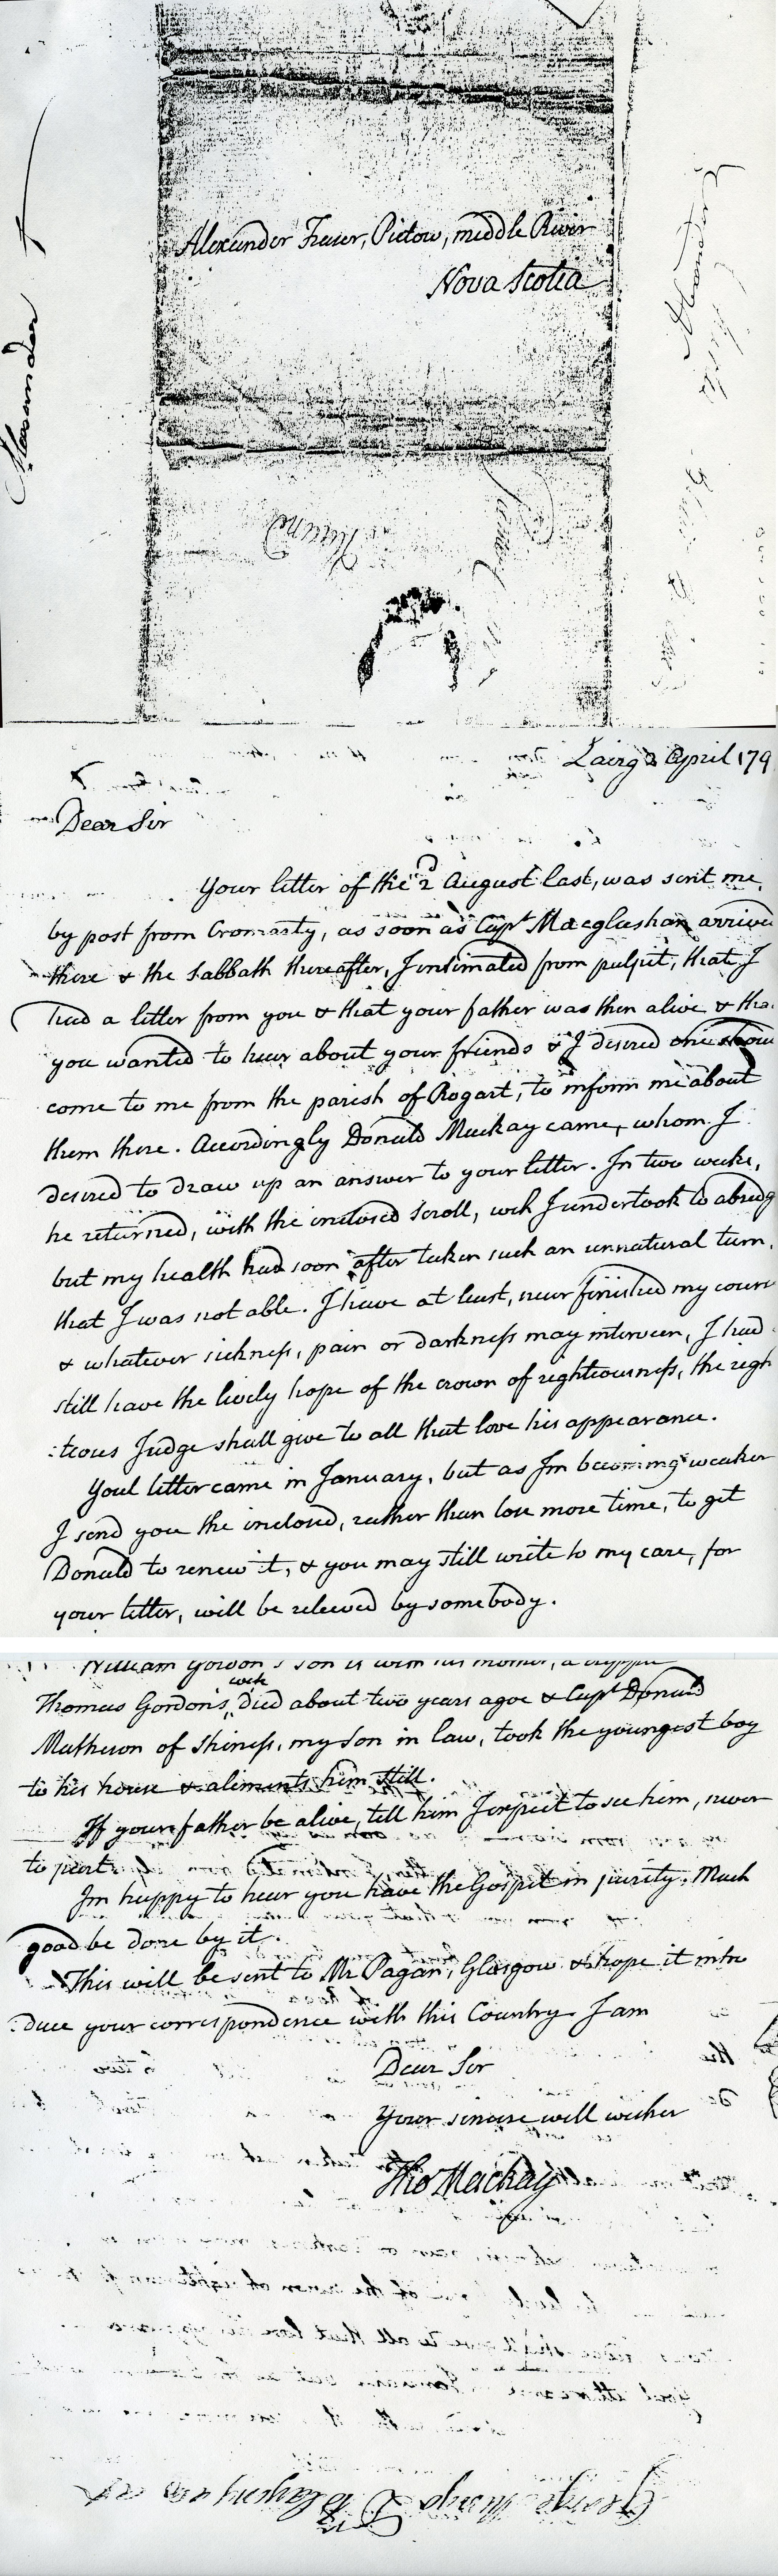 Alexander Fraser, Pictow, middle River
Nova Scotia
Alexander
Lairg 2 April 179
Dear Sir
Your letter of the 2d August last, was sent me
by post from Cromarty, as soon as Capt Macglashan arrived
there & the Sabbath thereafter, I intimated from pulpit, that I
had a letter from you & that your father was then alive & tha
you wanted to hear about your friends & I desired
come to me from the parish of Rogart, to inform me about
them there. Accordingly Donald Mackay came, whom I
desired to draw up an answer to your letter. In two weeks,
he returned, with the inclosed Scroll, wch I undertook to abridg
but my health had soon after taken such an unnatural turn,
that I was not able. I have at least, near finished my cours
& whatever sickness, pain or darkness may interveen, I had
still have the lively hope of the crown of righteousness, the righ
:teous Judge shall give to all that love his appearance.
Youl letter came in January, but as Im becoming weaker
I send you the inclosed, rather than lose more time, to get
Donald to renew it, & you may still write to my care, for
your letter, will be releived by somebody.
William Gordon's son is with his mother, a cripple
Thomas Gordon's wife died about two years agoe & Capt Donald
Matheson of Shiness, my son in law, took the youngest boy
to his house & aliments him still.
If your father be alive, tell him I expect to see him, never
to part.
Im happy to hear you have the Gospel in purity. Much
good be done by it.
This will be sent to Mr Pagan, Glasgow & hope it intro
:duce your correspondence with this Country. I am
Dear Sir
Your sincere well wisher
Tho Mackay